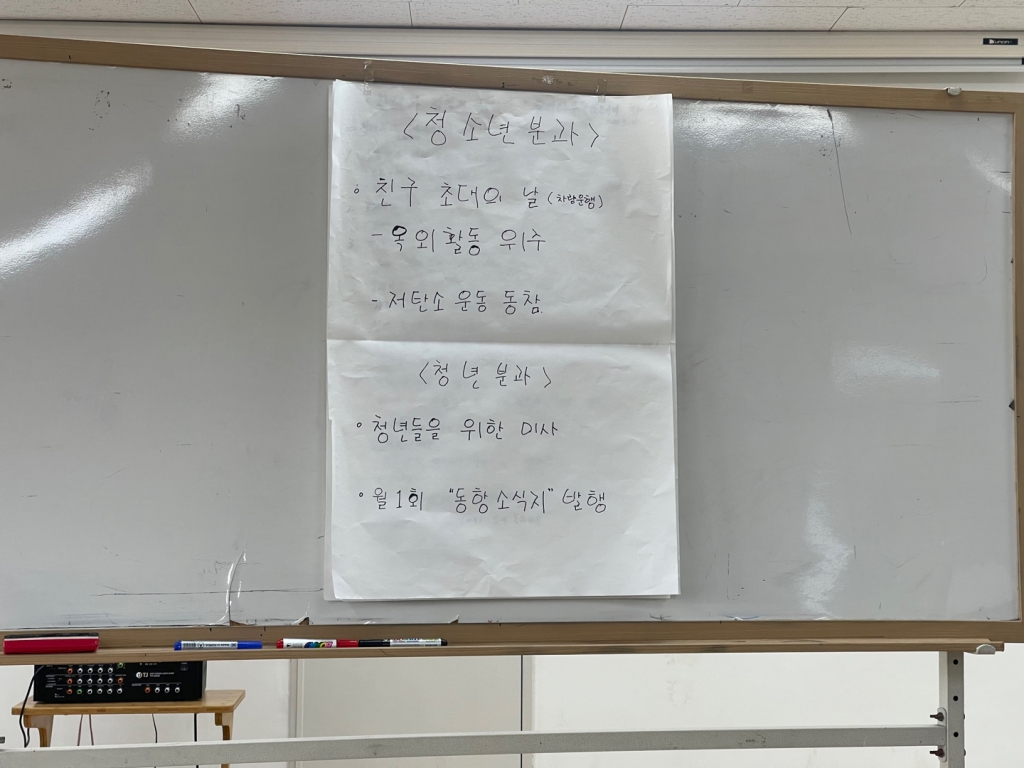 <청소년분과>
∘ 친구 초대의 날 (차량운행)
- 옥외활동 위주
- 저탄소 운동 동참.
<청년분과>
∘ 청년들을 위한 미사
∘ 월1회 "동향소식지" 발행
TJ